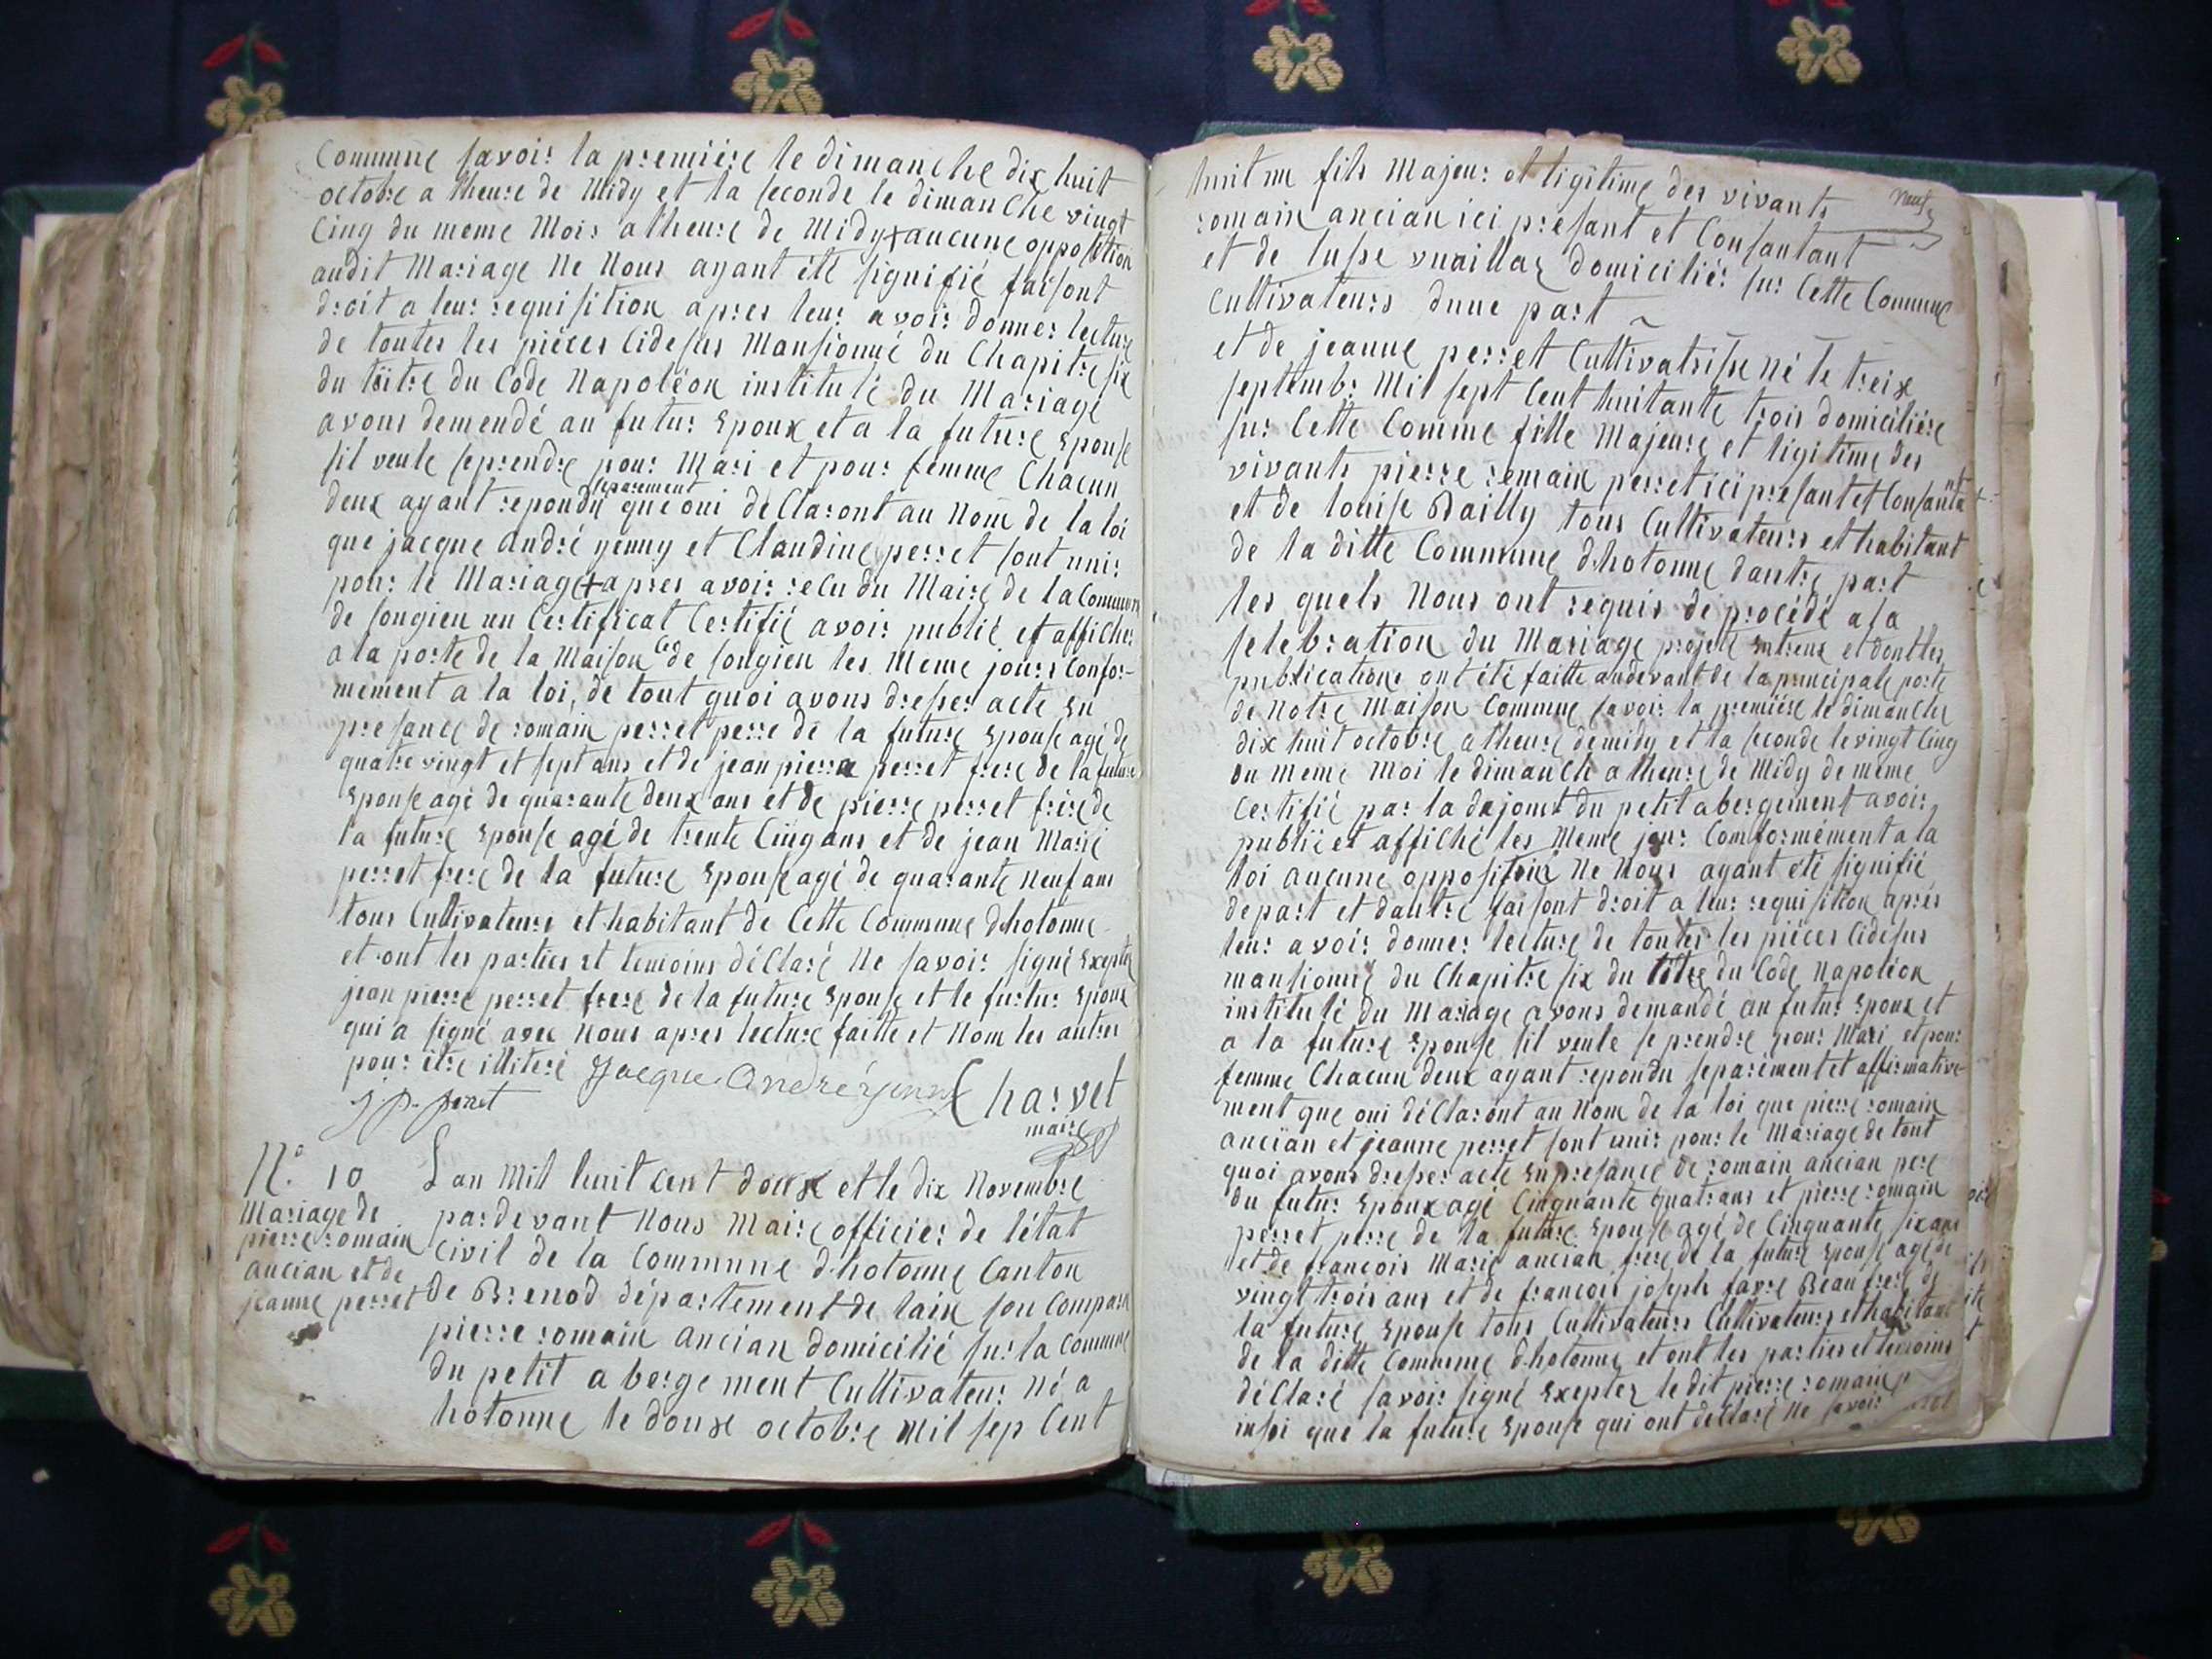 Commune savoir la première le dimanche dix huit
octobre a theure de Midy et la seconde le dimanche vingt
Cinq du meme Mois a theure de Midy + aucune opposition
audit Mariage Ne Nous ayant été signifié faisont
droit a leur requisition apres leur avoir donner lecture
de toutes les pièces Cidesus Mansionné du Chapitre six
du titre du Code Napoléon institulé du Mariage
avons demendé au futur Epoux et a la future Epouse
sil veule seprendre pour Mari et pour femme Chacun
deux ayant repondu separement que oui declaront au Nom de la loi
que jacque andré yenny et Claudine perret sont unir
pour le Mariage + apres avoir recu du Maire de la Commune
de songieu un Certificat Certifié avoir publié et afficher
a la porte de la Maison Ce de songieu les Meme jours Confor-
mement a la loi, de tout quoi avons dresser acte En
presance de romain perret perre de la future Epouse agé de
quatre vingt et sept ans et de jean pierre perret frere de la future
Epouse agé de quarante deux ans et de pierre perret frere de
la future Epouse agé de trente Cinq ans et de jean Marie
perret frere de la future Epouse agé de quarante Neuf ans
tous Cultivateurs et habitant de Cette Commune d'hotonne
et ont les parties et temoins déClaré Ne savoir signé Exepter
jean pierre perret frere de la future Epouse et le furtur Epoux
qui a signé avec Nous apres lecture faitte et Nom les autres
pour être illiteré Jacque André yenny Charvet
j p perret
maire
N.° 10
Mariage de
pierre romain
ancian et de
jeanne perret
Lan Mil huit cent douse et le dix Novembre
pardevant Nous Maire officier de létat
Civil de la Commune d'hotonne Canton
de Brenod département de lain son Comparu
pierre romain ancian domicilié sur la Commune
du petit abergement Cultivateur Né a
hotonne le doux octobre Mil sep Cent
neuf
huit nu fils Majeur et ligitime des vivants
romain ancian ici présant et Consantant
et de lusse vuaillaz domiciliér sur Cette Commune
Cultivateurs dune part
et de jeanne perret Cultivatrisse Né le treix
septembr Mil sept Cent huitante trois domicilière
sur Cette Comme fille Majeure et ligitime des
vivants pierre remain perret ici presant et Consanta nt
et de louise Bailly tous Cultivateurs et habitant
de la ditte Commune d'hotonne dautre part
les quels Nous ont requis de procédé a la
selebration du Mariage projetté Entreux et dont les
publications ont été faitte audevant de la principale porte
de Notre Maison Commune savoir la première le dimanche
dix huit octobre a theure de midy et la seconde le vingt Cinq
du meme Moi le dimanch a theure de Midy de meme
Certifié par la dajoint du petit abergement avoir
publié et affiché les Meme jour Comformément a la
loi aucune oppositoin Ne Nous ayant été signifié
depart et dautre faisont droit a leur requisition aprés
leur avoir donner lecture de toutes les piéces Cidesus
mansionné du Chapitre six du titre du Code Napoléon
institulé du Mariage avons demandé au futur Epoux et
a la future Epouse sil veule se prendre pour Mari et pour
femme Chacun deux ayant repondu separément et affirmative-
ment que oui déClaront au Nom de la loi que pierre romain
ancïan et jeanne perret sont unir pour le Mariage de tout
quoi avons dresser acte En presance de romain ancian pere
du futur Epoux agé Cinquante quatrans et pierre romain
perret perre de la future Epouse agé de Cinquante six ans
et de francois Marie ancian frere de la future Epouse agé de
vingt trois ans et de francois joseph favre Beau frere de
la future Epouse tous Cultivateurs Cultivateurs et habitant
de la ditte Commune d'hotonne et ont les parties et temoins
déClaré savoir signé Exepter le dit pierre romain
insoi que la future Epouse qui ont deClaré Ne savoir